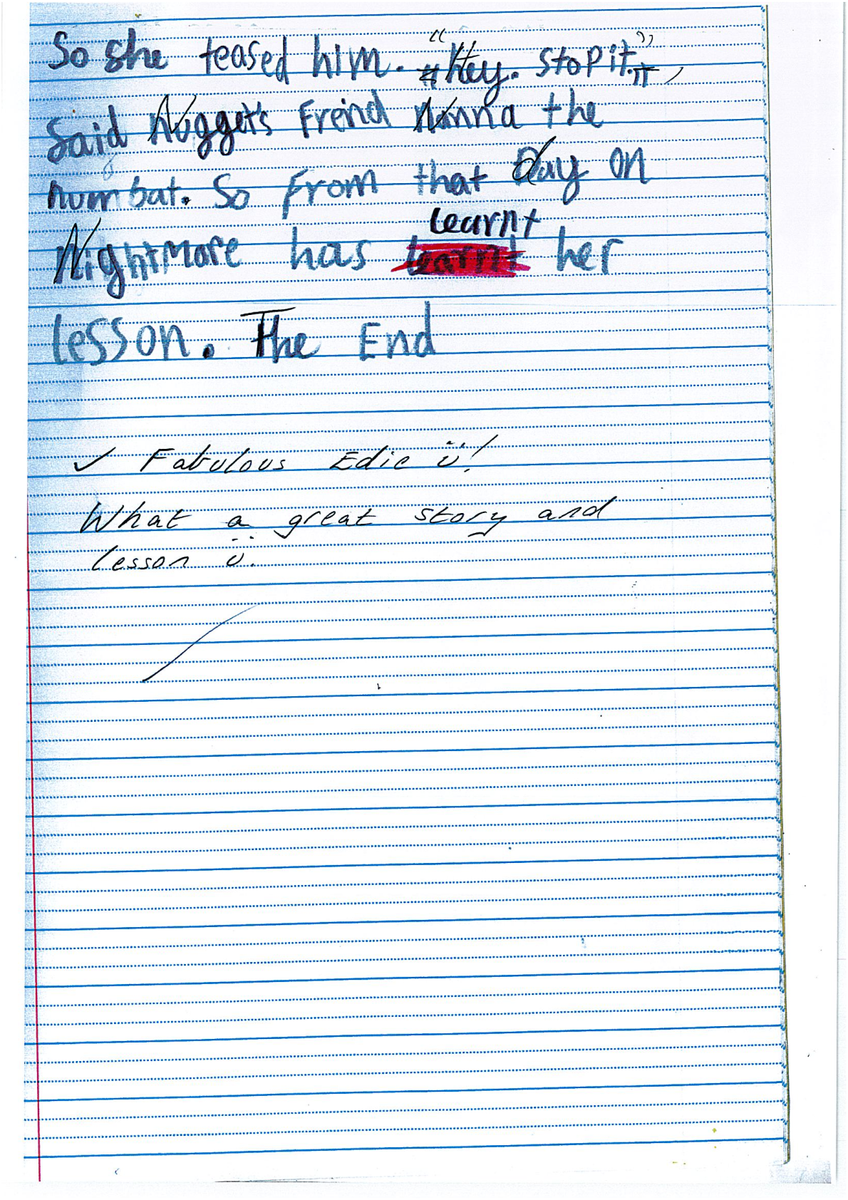 So she teased him. "Hey. stop it",
Said Nugget's Freind Nanna the
numbat. So from that day on
learnt
Nightmare has learnt her
lesson. The End
✓ Fabulous Edie ü!
What a great story and
lesson ü.